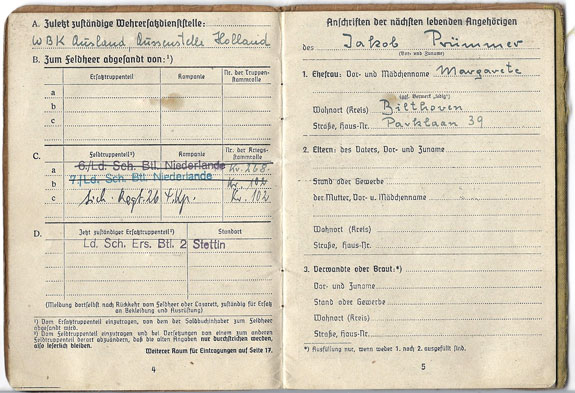 A. Zuletzt zuständige Wehrersatzdienststelle:
WBK Ausland Aussenstelle Holland
B. Zum Feldheer abgesandt von:¹)
Ersatztruppenteil Kompanie Nr. der Truppen-
stammrolle
a
b
c
C. Feldtruppenteil²) Kompanie Nr. der Kriegs-
stammrolle
a 6./Ld. Sch. Btl. Niederlande Kr. 268.
b 7./Ld. Sch. Btl. Niederlande Kr. 102
c Sich. Regt. 26 4. Kp. Kr. 102
D. Jetzt zuständiger Ersatztruppenteil²) Standort
Ld. Sch. Ers. Btl. 2 Stettin
(Meldung dortselbst nach Rückkehr vom Feldheer oder Lazarett, zuständig für Ersatz
an Bekleidung und Ausrüstung)
¹) Vom Ersatztruppenteil einzutragen, von dem der Soldbuchinhaber zum Feldheer
abgesandt wird.
²) Vom Feldtruppenteil einzutragen und bei Versetzungen von einem zum anderen
Feldtruppenteil derart abzuändern, daß die alten Angaben nur durchstrichen werden,
also leserlich bleiben.
Weiterer Raum für Eintragungen auf Seite 17.
4
Anschriften der nächsten lebenden Angehörigen
des Jakob Prümmer
(Vor- und Zuname)
1. Ehefrau: Vor- und Mädchenname Margarete
(ggf. Vermerk „ledig")
Wohnort (Kreis) Bilthoven
Straße, Haus-Nr. Parklaan 39
2. Eltern: des Vaters, Vor- und Zuname
Stand oder Gewerbe
der Mutter, Vor- u. Mädchenname
Wohnort (Kreis)
Straße, Haus-Nr.
3. Verwandte oder Braut:*)
Vor- und Zuname
Stand oder Gewerbe
Wohnort (Kreis)
Straße, Haus-Nr.
*) Ausfüllung nur, wenn weder 1. noch 2. ausgefüllt sind.
5